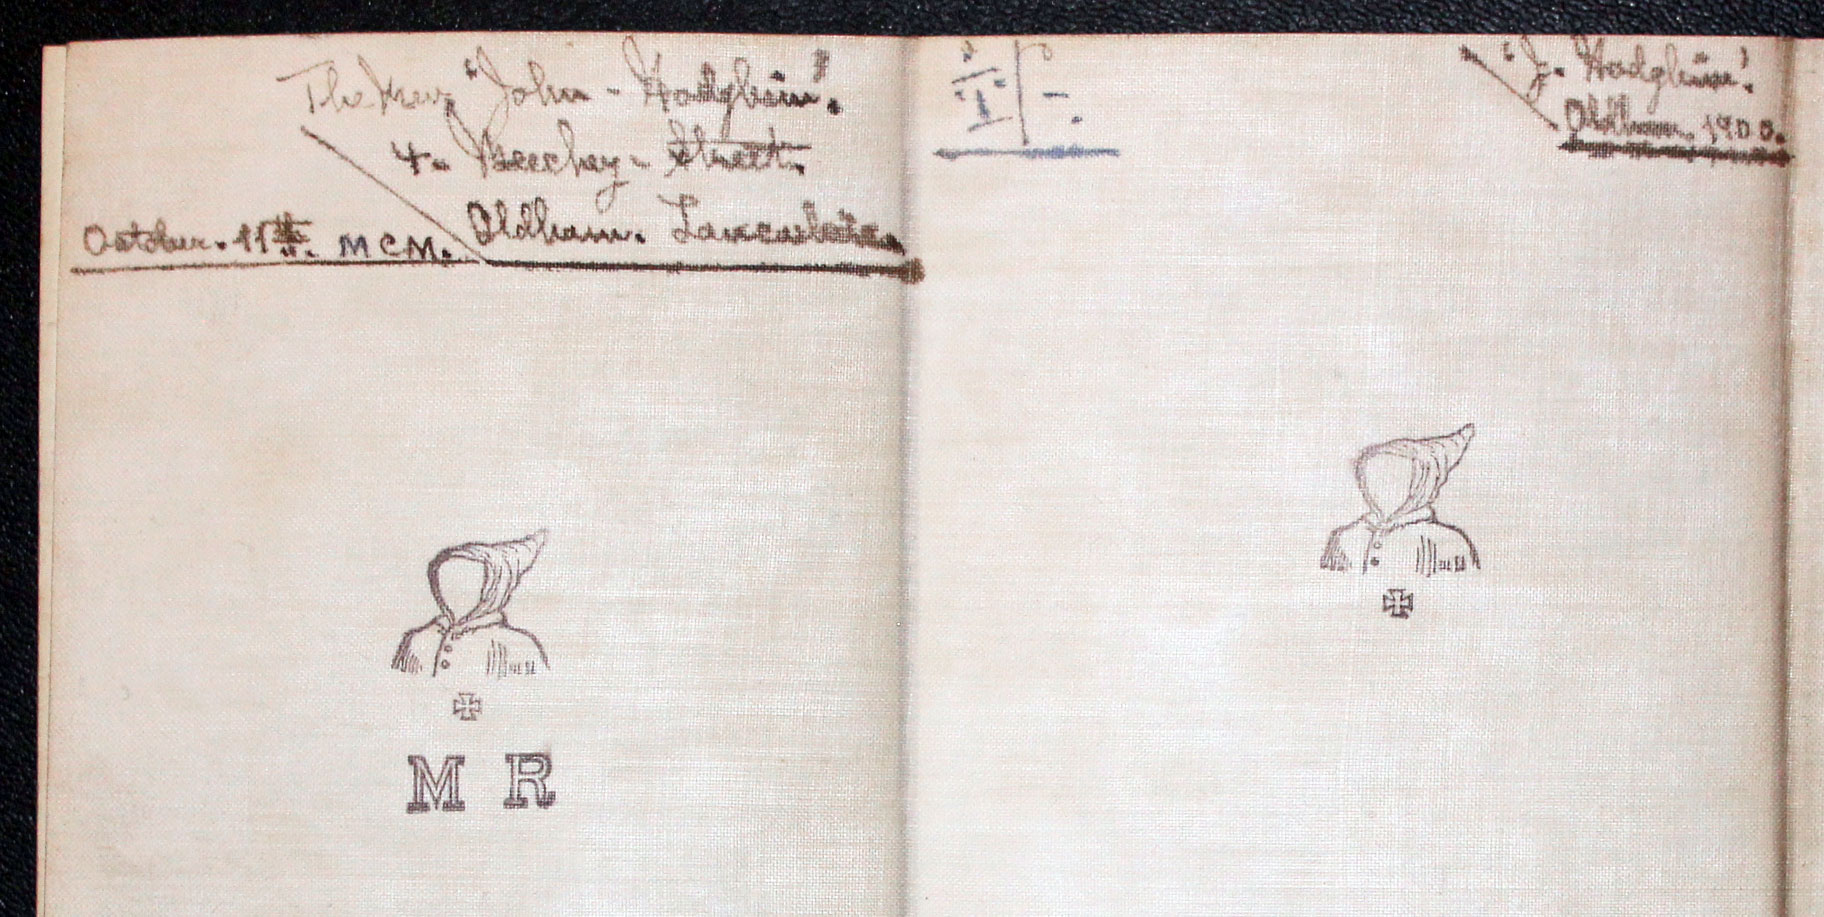 The Rev. "John - Hodgkin".
4. Beechey - Street.
October. 11th. MCM. Oldham. Lancashire
M R
I
"J. Hodgkin".
Oldham. 1900.